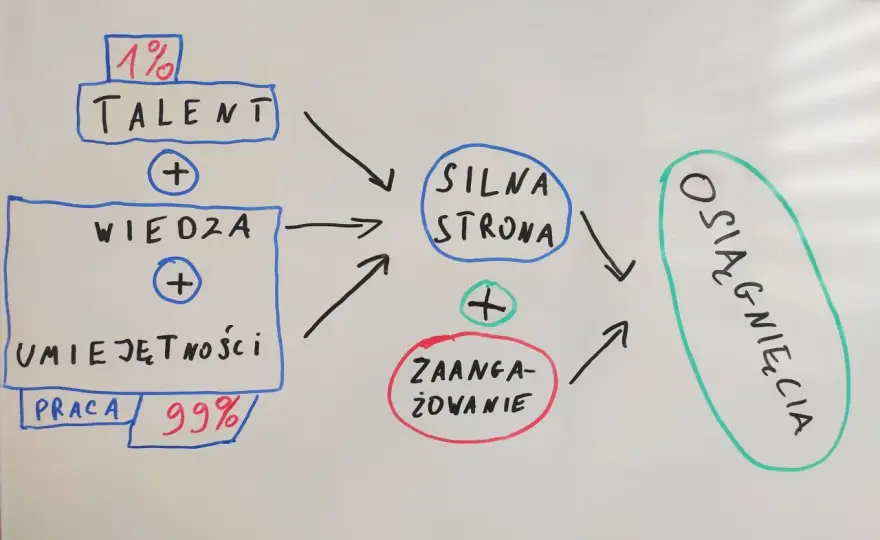 1%
TALENT
+
WIEDZA
+
UMIEJĘTNOŚCI
PRACA 99%
SILNA
STRONA
+
ZAANGA-
ŻOWANIE
OSIĄGNIĘCIA